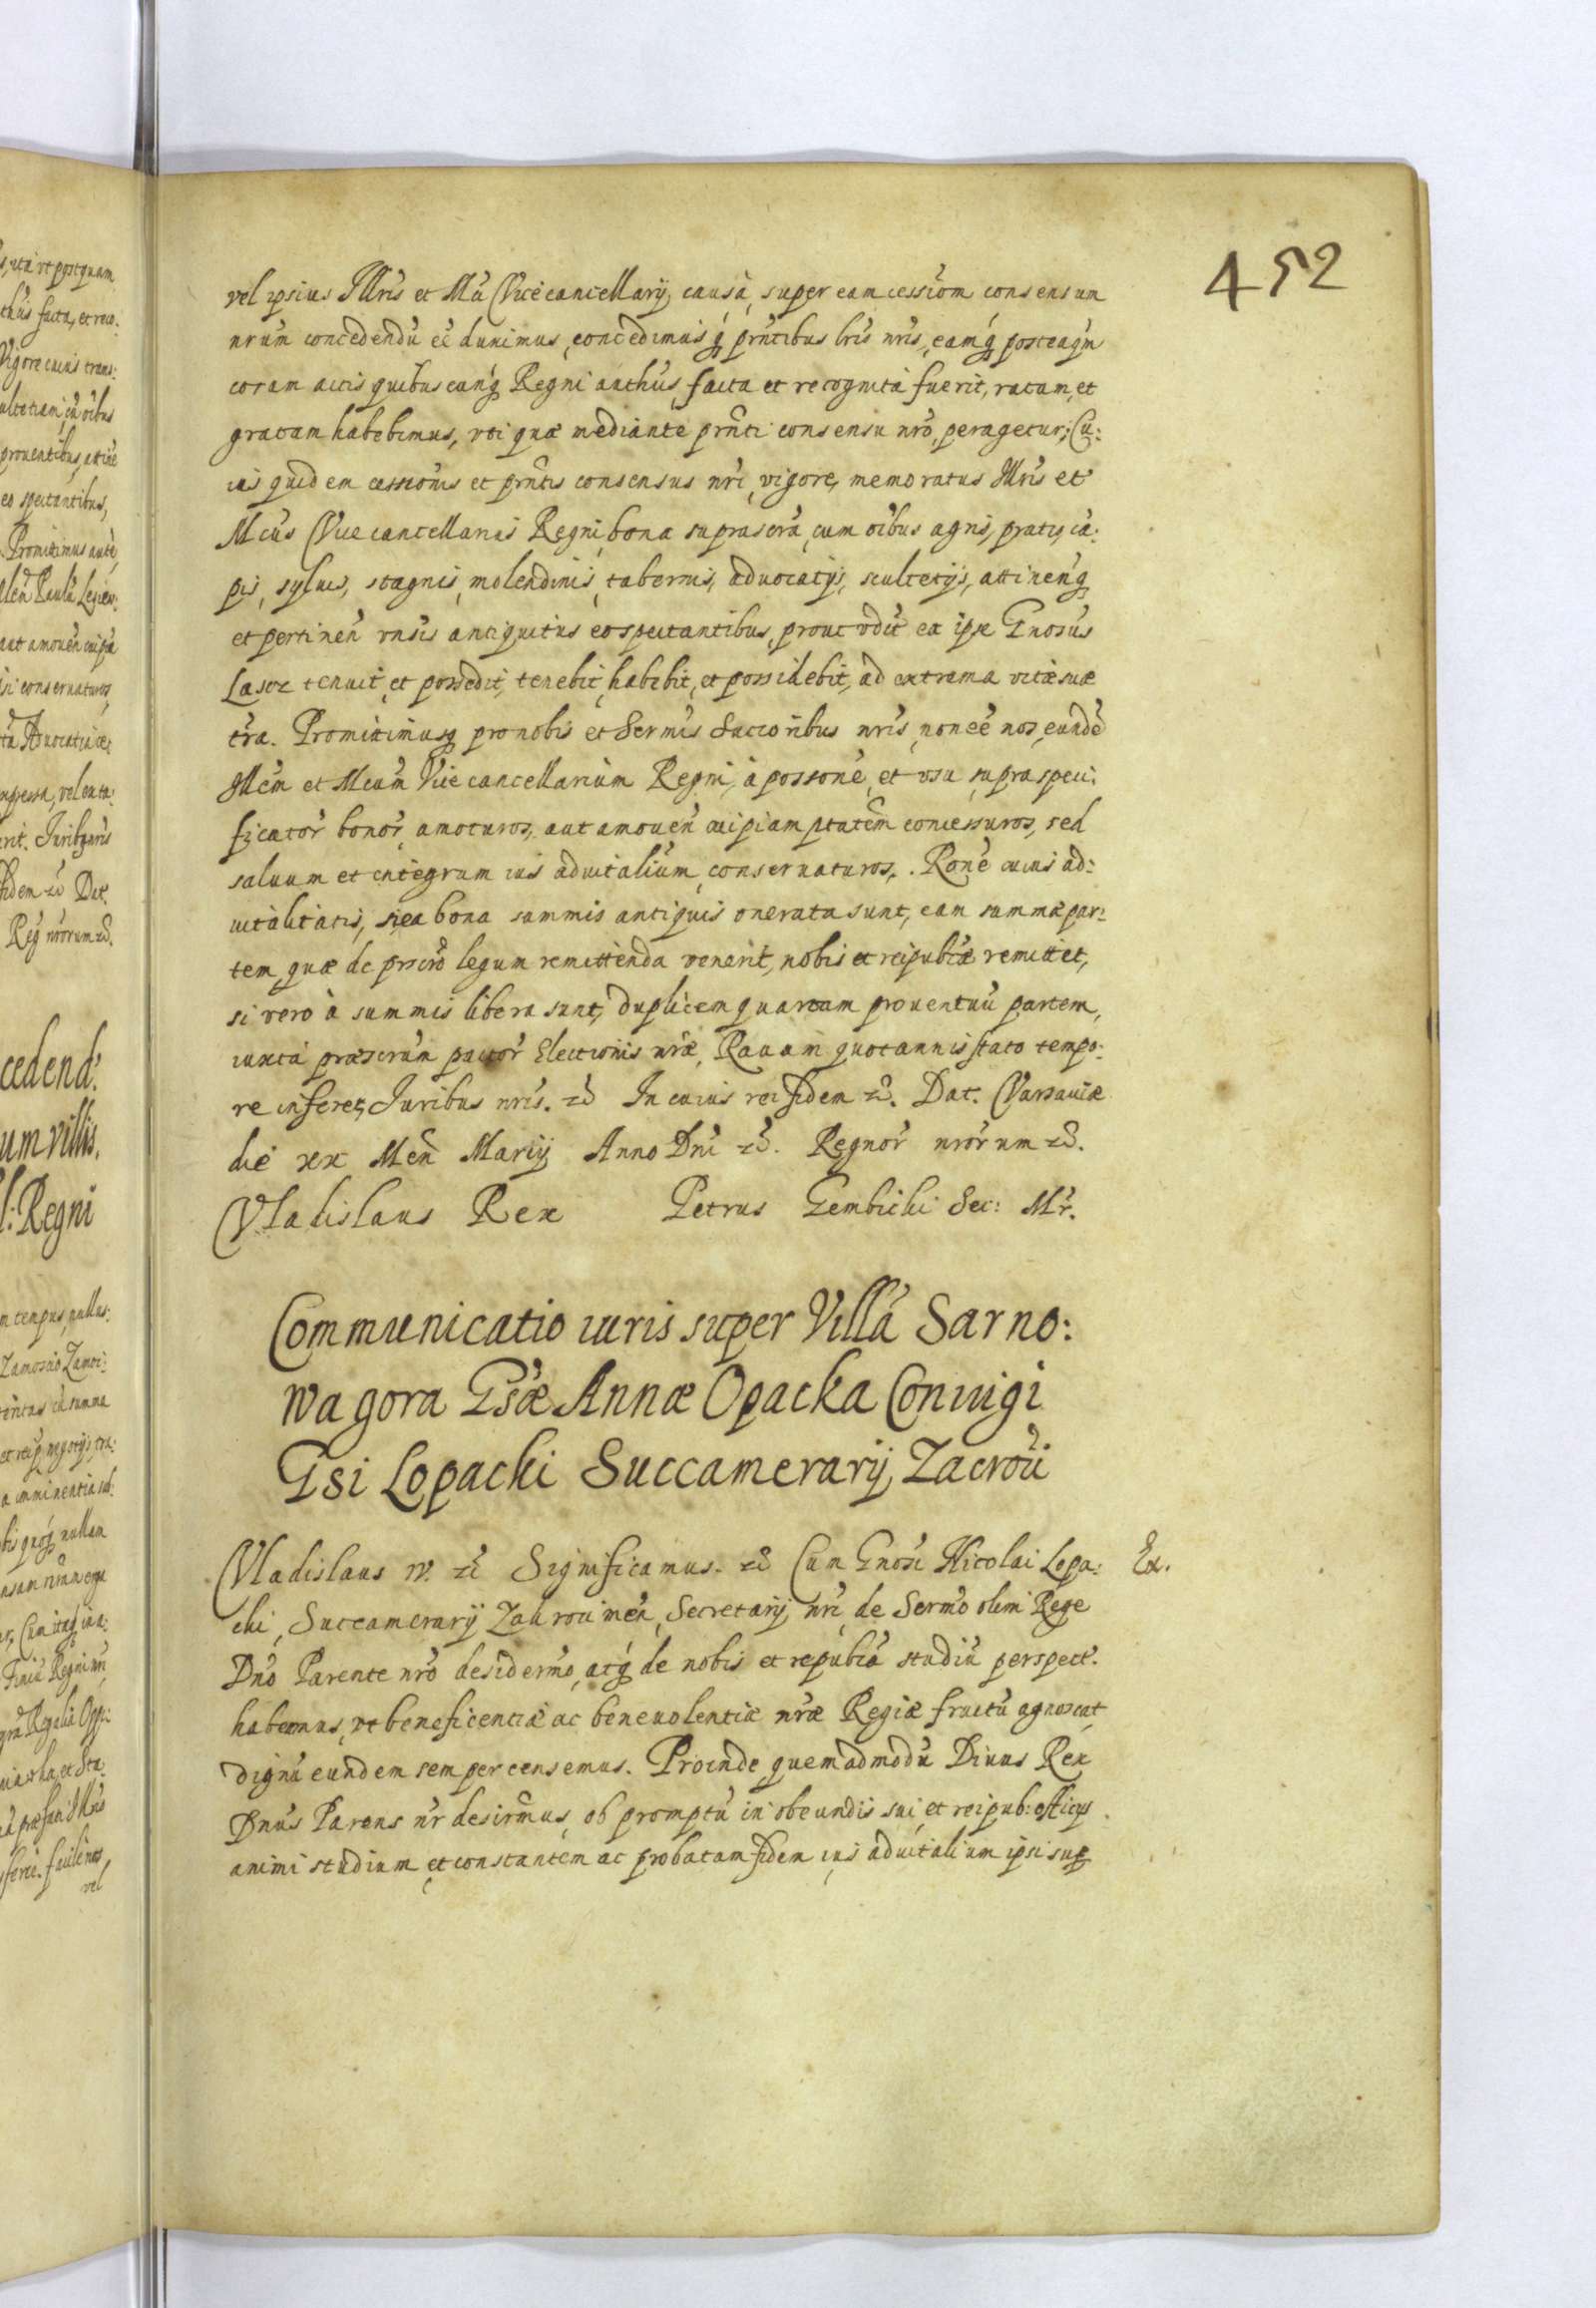 452
vel ipsius Illris et Mci Vicecancellarij causâ, super eam cessiom consensum
nrum concedendũ eẽ duximus, concedimusq̃ prñtibus lris nris, eamq̃ posteaqm
coram actis quibuscunq̃ Regni authûs facta et recognita fuerit, ratam, et
gratam habebimus, vti quæ mediante prñti consensu nrô, peragetur; Cu:
ius quidem cessionis et prñtis consensus nri, vigore, memoratus Illris et
Mcus Vicecancellarius Regni, bona suprascrã, cum oibus agris, pratis, cã:
pis, syluis, stagnis, molendinis, tabernis, aduocatijs, scultetijs, attinen̄q̃
et pertinen̄ vnsis antiquitus eo spectantibus, prout vdũt ea ipse Gnosus
Lasoc tenuit, et possedit, tenebit, habebit, et possidebit, ad extrema vitæ suæ
tra. Promittimusq̃ pro nobis et Sermis Succoribus nris, non eẽ nos, eundẽ
Illem et Mcum Vicecancellarium Regni, à possone, et vsu, supraspeci:
ficator̃ bonor̃, amoturos, aut amouen̄ cuipiam ptatem concessuros, sed
saluum et integrum ius aduitalium, conseruaturos. Rone cuius ad:
uitalitatis, si ea bona summis antiquis onerata sunt, eam summæ par:
tem, quæ de prscrõ legum remittenda venerit, nobis et reipublicæ remittet,
si vero à summis libera sunt, duplicem quartam prouentuũ partem,
iuxta præscrum pactor̃ Electionis nræ, Rauam quotannis stato tempo:
re inferet, Iuribus nris. etc̃ In cuius rei fidem etc̃. Dat. Varsauiæ
die xx Men̄ Marij Anno Dni etc̃. Regnor̃ nrorum etc̃.
Vladislaus Rex Petrus Gembicki Sec: Mr.
Communicatio iuris super Villã Sarno:
wa gora Gsæ Annæ Opacka Coniugi
Gsi Lopacki Succamerarij Zacroũ
Vladislaus IV. etc̃ Significamus. etc̃ Cum Gnosi Nicolai Lopa: Ex.
cki, Succamerarij Zakrouimen̄, Secretarij nri, de Sermo olim Rege
Dno Parente nro desidermo, atq̃ de nobis et republica studiũ perspect.
habeamus, vt beneficentiæ ac beneuolentiæ nræ Regiæ fructũ agnoscat
dignũ eundem semper censemus. Proinde quemadmodũ Diuus Rex
Dnus Parens nr desirmus, ob promptũ in obeundis sui, et reipub: officijs
animi studium, et constantem ac probatam fidem, ius aduitalium ipsi sup̃